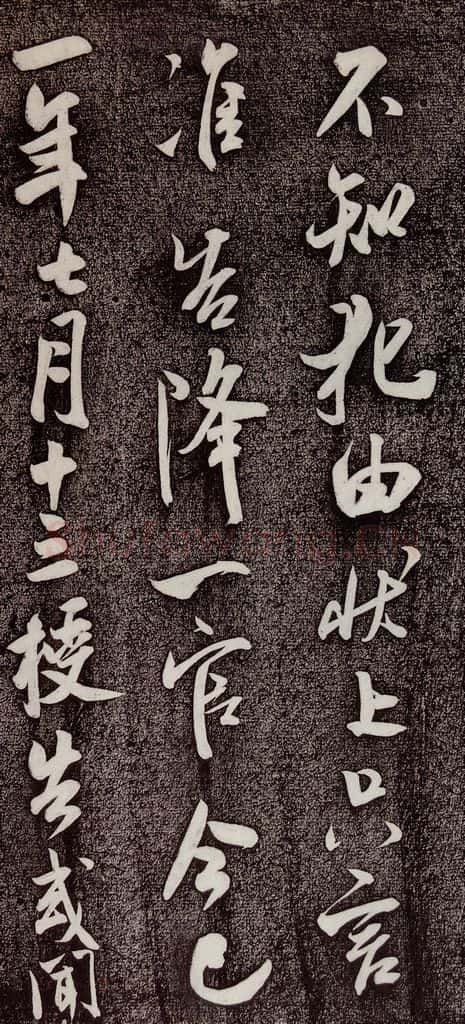 不知犯由状上只言
准告降一官今已
一年七月十三授告或闻